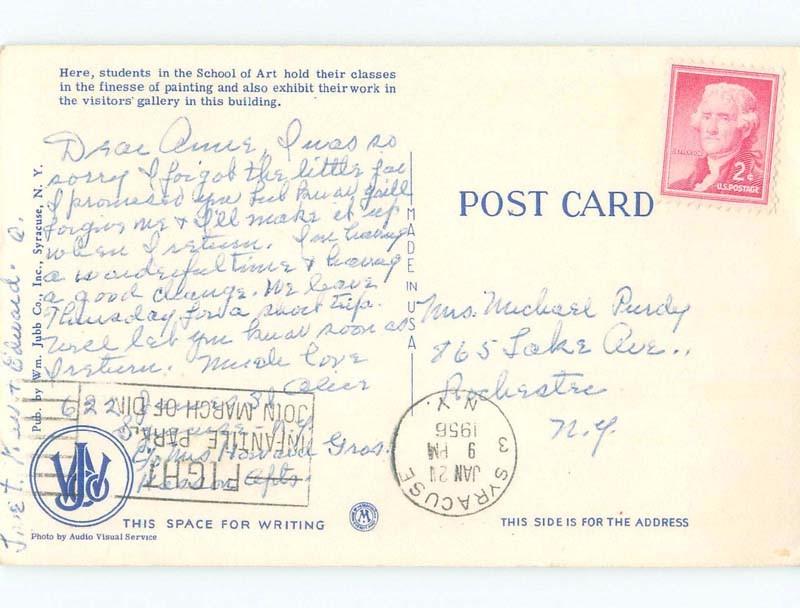 Here, students in the School of Art hold their classes
in the finesse of painting and also exhibit their work in
the visitors' gallery in this building.
Dear Anne, I was so
sorry I forgot the little
I promised you but know you'll
forgive me & I'll make it up
when I return. I'm having
a wonderful time & having
a good change. We leave
Thursday for a short trip.
Will let you know soon as
I return. Much love
Alice
622 St
Syracuse N.Y.
Howard Gros.
Apts.
Edward.
Pub. by Wm. Jubb Co., Inc., Syracuse, N. Y.
MADE IN USA
POST CARD
2¢
U.S. POSTAGE
Mrs. Michael Purdy
865 Lake Ave.,
Rochester
N.Y.
SYRACUSE 3
N.Y.
JAN 24
9 PM
1956
FIGHT
INFANTILE PARALYSIS
JOIN MARCH OF DIMES
WJCo
THIS SPACE FOR WRITING
M
THIS SIDE IS FOR THE ADDRESS
Photo by Audio Visual Service